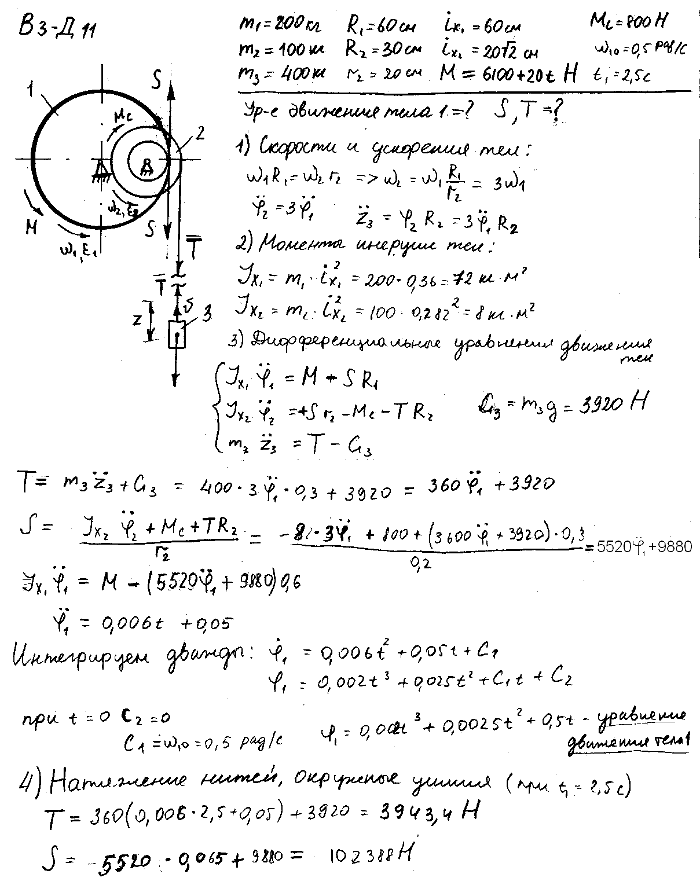 В3-Д 11
m₁=200кг R₁=60см i_x₁=60см M_c=800 Н
m₂=100кг R₂=30см i_x₂=20√2 см ω₁₀=0,5 рад/с
m₃=400кг r₂=20см M=6100+20t Н t₁=2,5с
Ур-е движение тела 1=? S,T=?
1) Скорости и ускорения тел:
ω₁R₁=ω₂r₂ => ω₂=ω₁ R₁/r₂ = 3ω₁
φ̈₂=3φ̈₁ z̈₃=φ₂R₂=3φ̈₁R₂
2) Момента инерции тел:
J_x₁=m₁·i²_x₁=200·0,36=72 кг·м²
J_x₂=m₂·i²_x₂=100·0,282²=8 кг·м²
3) Дифференциальные уравнения движения
тел
J_x₁ φ̈₁ = M + SR₁
J_x₂ φ̈₂ =+Sr₂-M_c-TR₂ G₃=m₃g=3920 Н
m₂ z̈₃ = T-G₃
1 S M_c 2
M ω₁,ε₁ ω₂,ε₂ S T
T z v 3
T= m₃z̈₃+G₃ = 400·3φ̈₁·0,3+3920=360φ̈₁+3920
S= (J_x₂φ̈₂+M_c+TR₂)/r₂ = (-8·3φ̈₁+800+(3600φ̈₁+3920)·0,3)/0,2 =5520φ̈₁+9880
J_x₁φ̈₁=M-(5520φ̈₁+9880)0,6
φ̈₁=0,006t+0,05
Интегрируем дважды: φ̇₁=0,006t²+0,05t+C₁
φ₁=0,002t³+0,025t²+C₁t+C₂
при t=0 C₂=0
C₁=ω₁₀=0,5 рад/с φ₁=0,002t³+0,0025t²+0,5t - уравнение
движения тела 1
4) Натяжение нитей, окружные усилия (при t₁=2,5с)
T=360(0,006·2,5+0,05)+3920=3943,4 Н
S=-5520·0,065+9880= 102388 Н